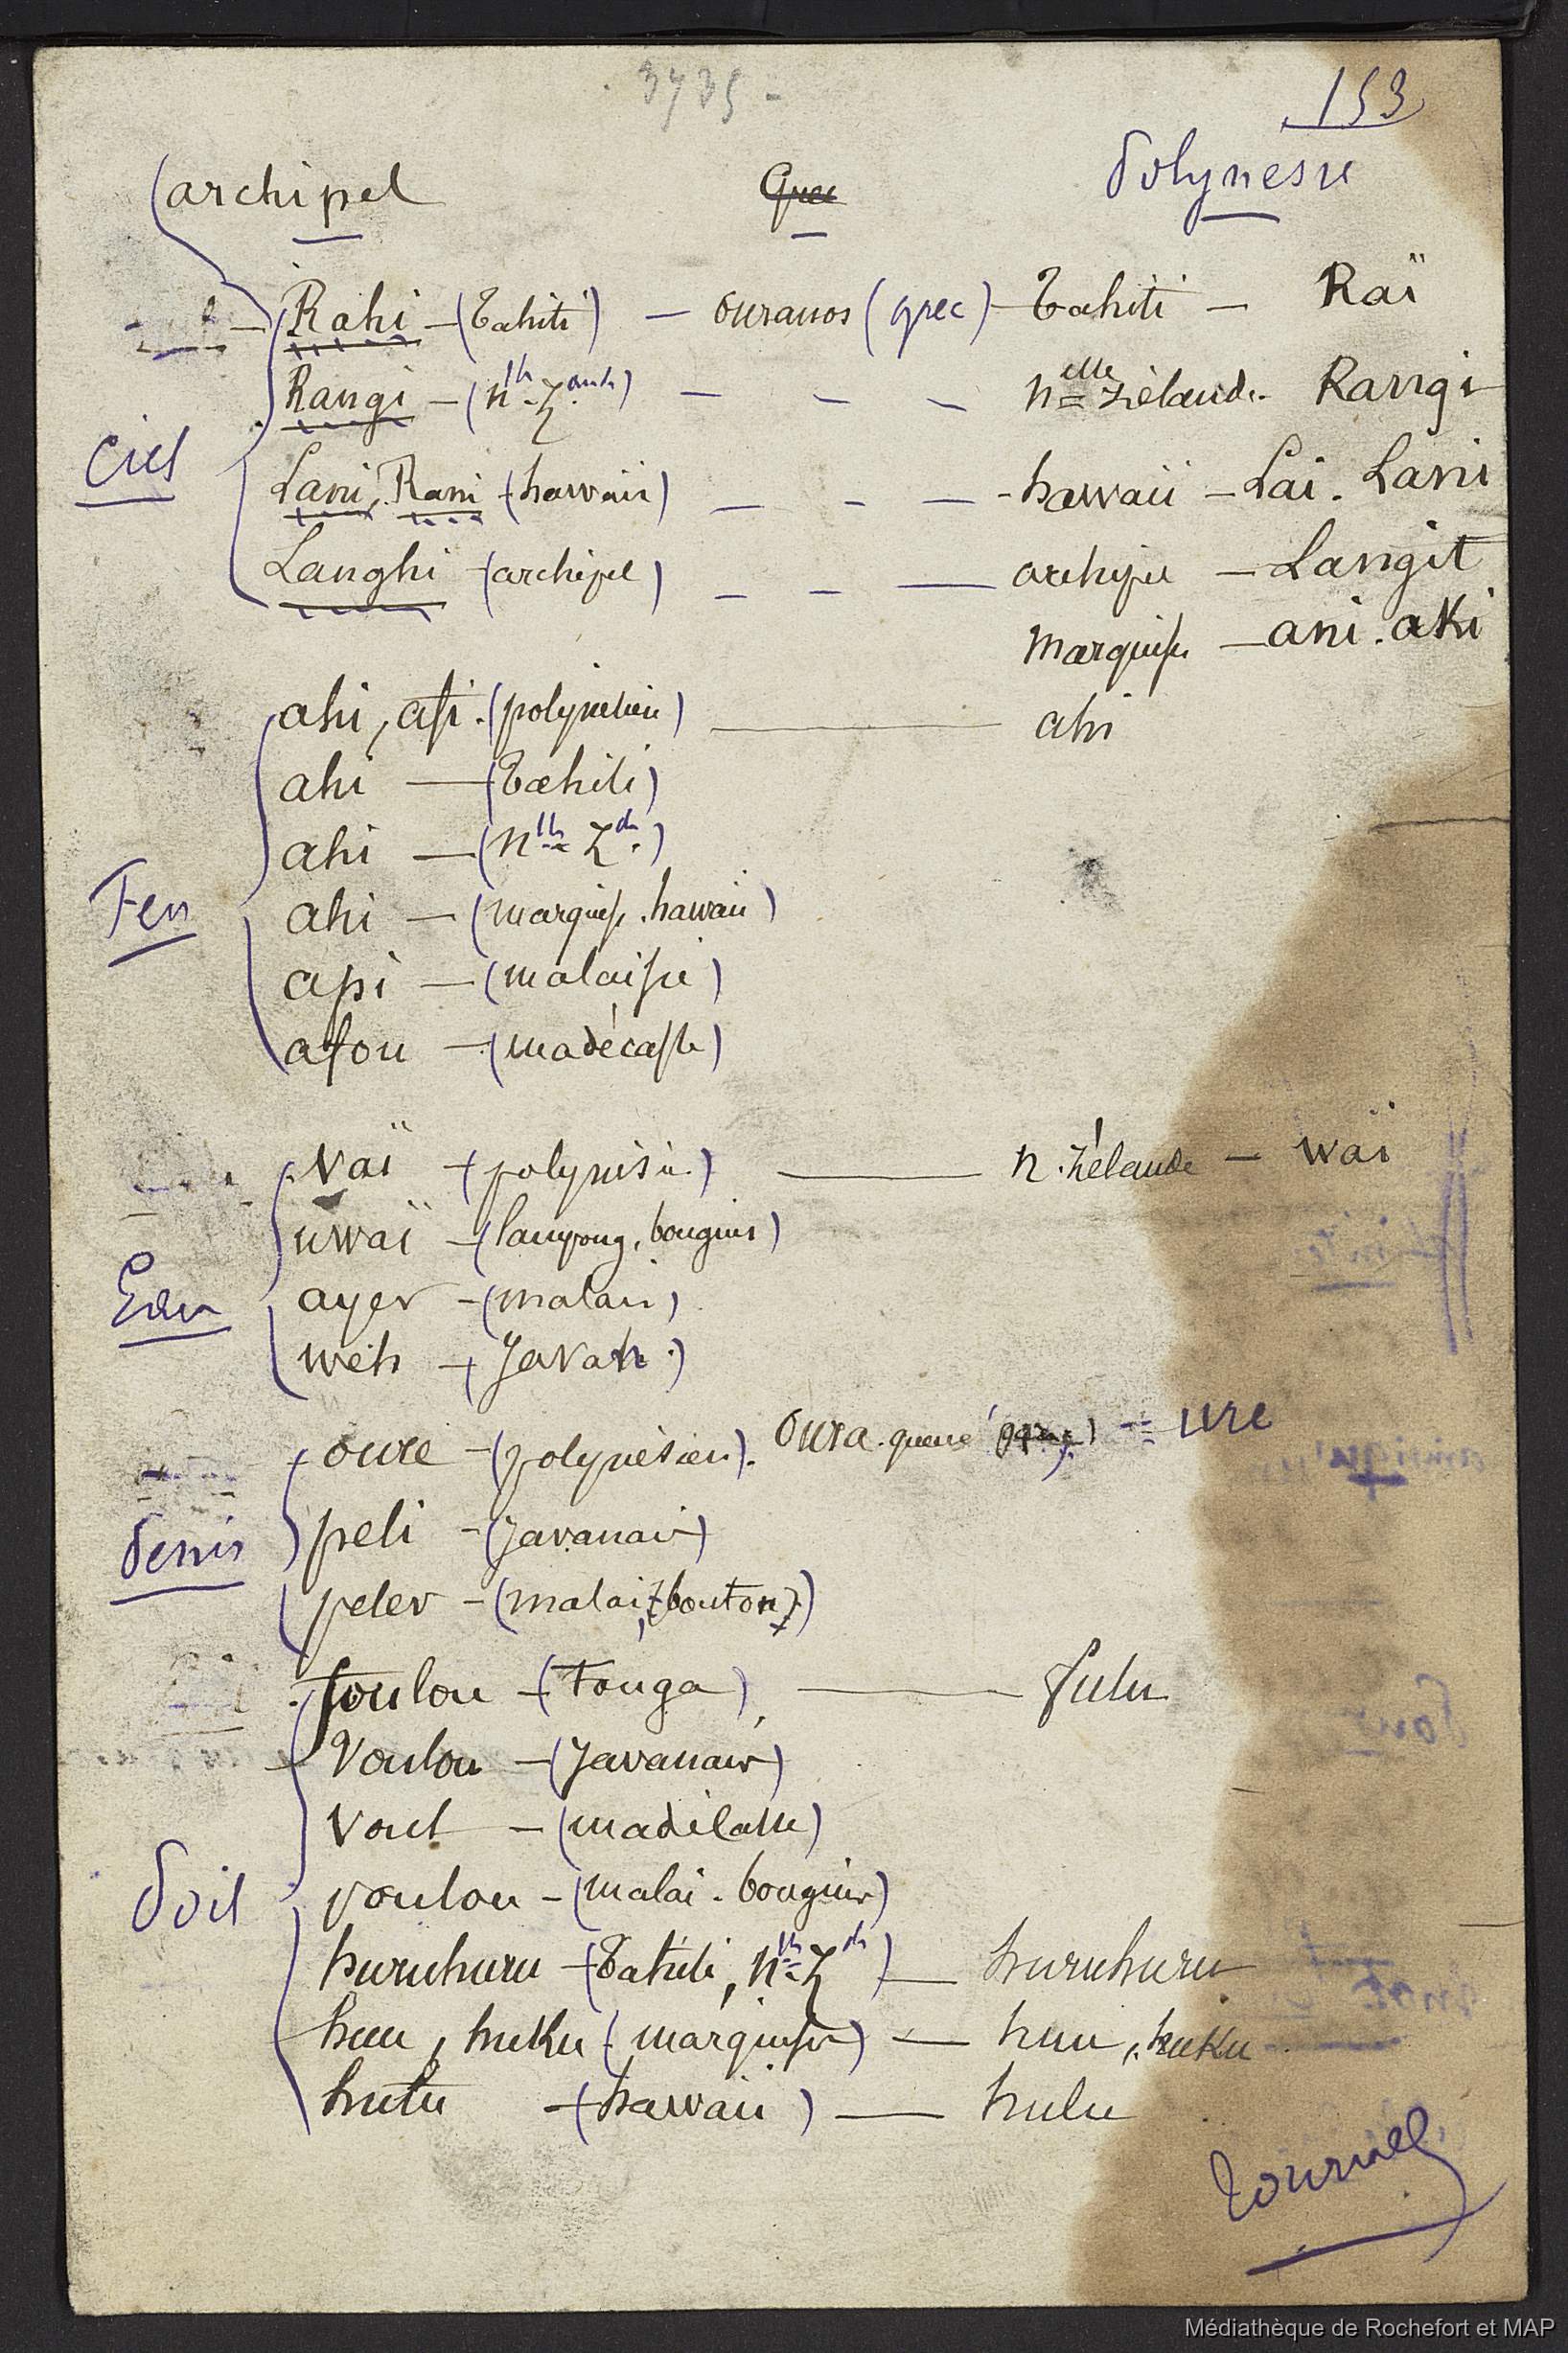 3735 -
153
archipel Grec Polynesie
Rahi - (Tahiti) - ouranos (grec) - Tahiti - Raï
Rangi - (nlle Zande) - - - nelle zélande. Rangi
Ciel
Lani, Rani - (hawaii) - - - hawaii - Lai. Lani
Langhi - (archipel) - - - archipel - Langit
marquises - ani. aki
ahi, afi. (polynésien) - ahi
ahi - (Tahiti)
ahi - (nlle Zde.)
Feu
ahi - (marquises. hawaii)
api - (malaisie)
afou - (madécasse)
Vaï - (polynésie.) - n. Zélande - waï
uwaï - (lampong, bouguis)
Eau
ayer - (malais)
weh - (Javan.)
oure - (polynésien). oura. queue (grec) - = ure
peli - (javanais)
Penis
peler - (malai, (bouton))
foulou - (Tonga) - fulu
Voulou - (Javanais)
Voul - (madécasse)
Poil
voulou - (malai. bouguis)
huruhuru - (Tahiti, nlle Zde) - huruhuru
huu, huku (marquises) - huu, huku
hutu - (hawaii) - hulu
Tournal
Médiathèque de Rochefort et MAP